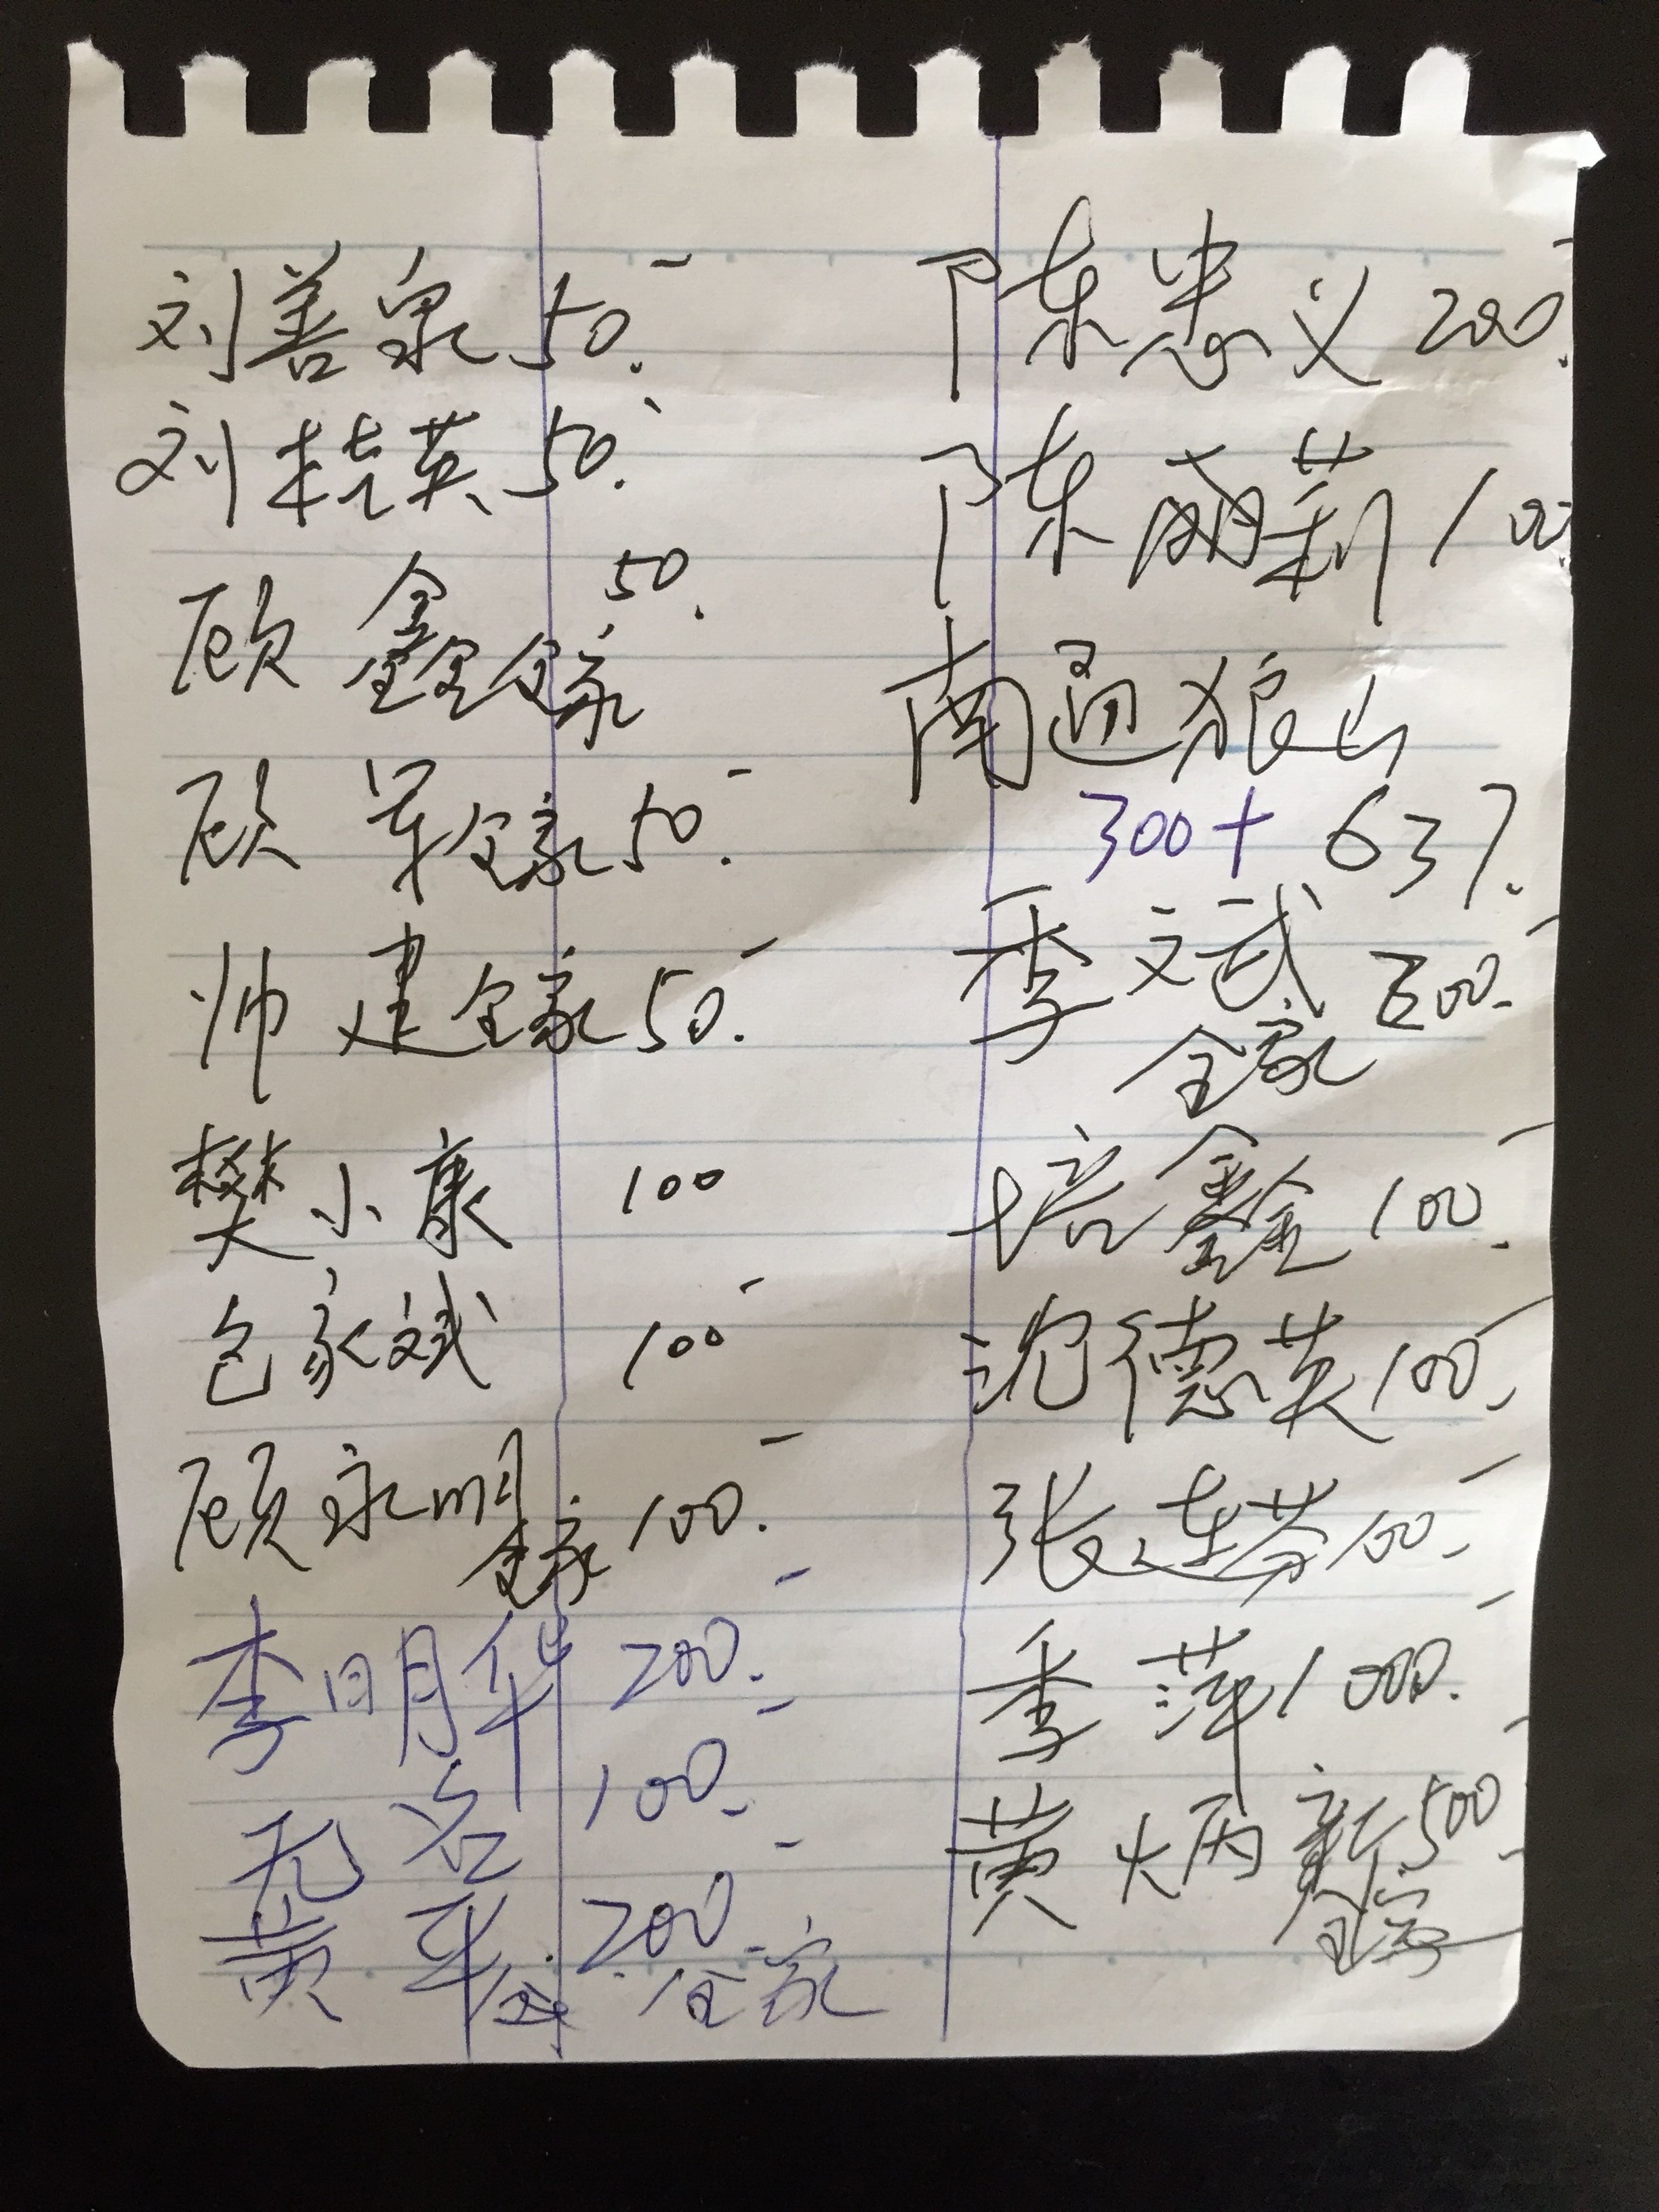 刘善泉 50.-
刘桂英 50.-
顾鑫全家 50.-
顾军全家 50.-
帅建全家 50.-
樊小康 100
包家斌 100-
顾永明全家 100.-
李明华 200.-
无名 100.-
黄平 200.-
全家
陈忠义 200.-
陈丽莉 100
南通狼山
300+637.
季文斌 200.-
全家
培鑫 100.-
沈德英 100.-
张连芬 100.-
季萍 1000.-
黄炳新 500.-
全家